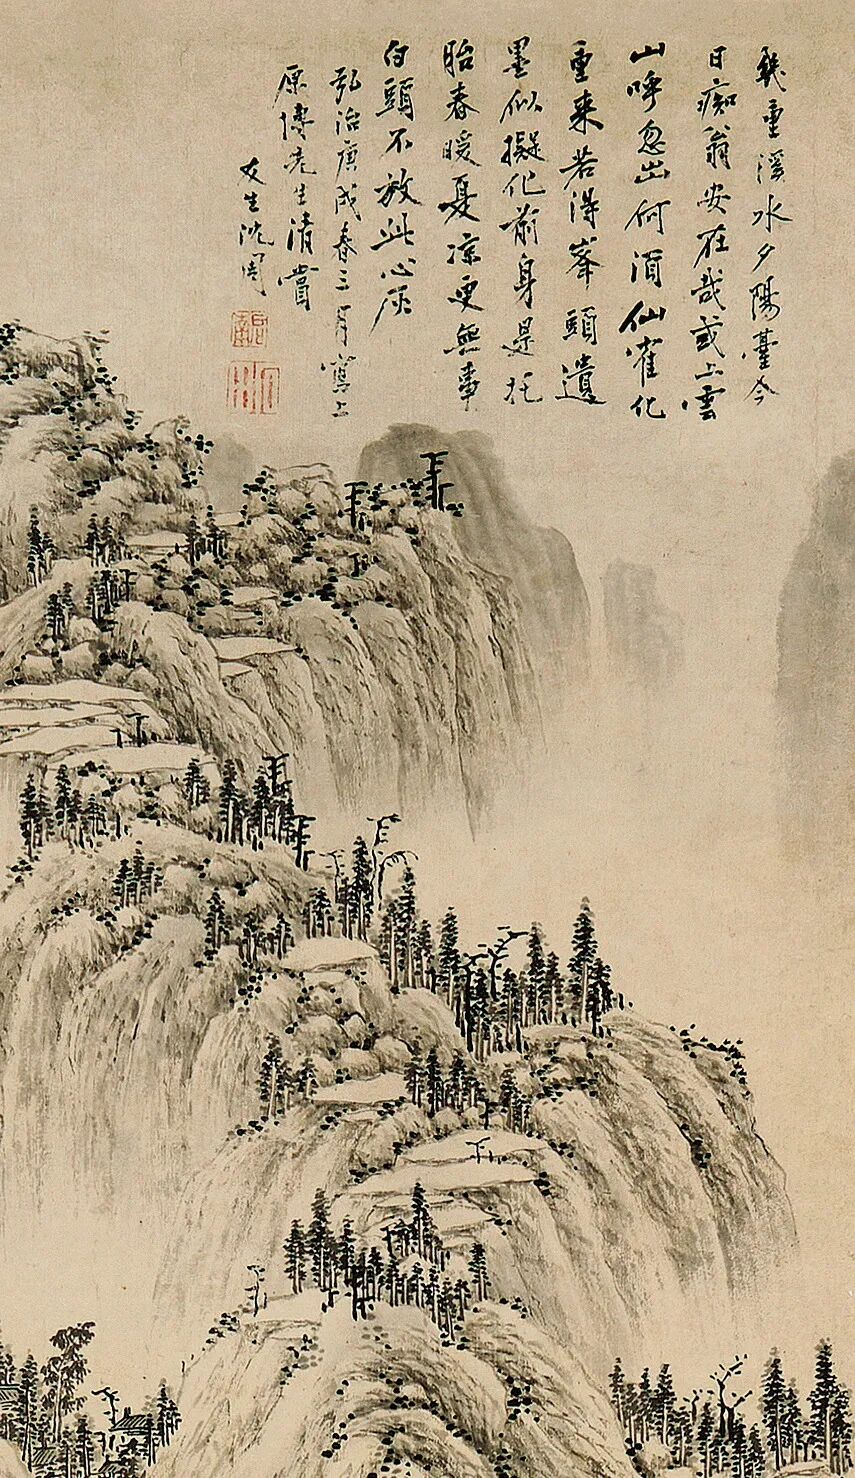 幾重溪水夕陽臺今
日痴翁安在哉或上雲
山呼忽出何湏仙隺化
重来若淂峯頭遺
墨似擬化前身是托
胎春暖夏凉更無事
白頭不放此心灰
弘治庚戌春三月寫上
原博先生清賞
友生沈周
啓南